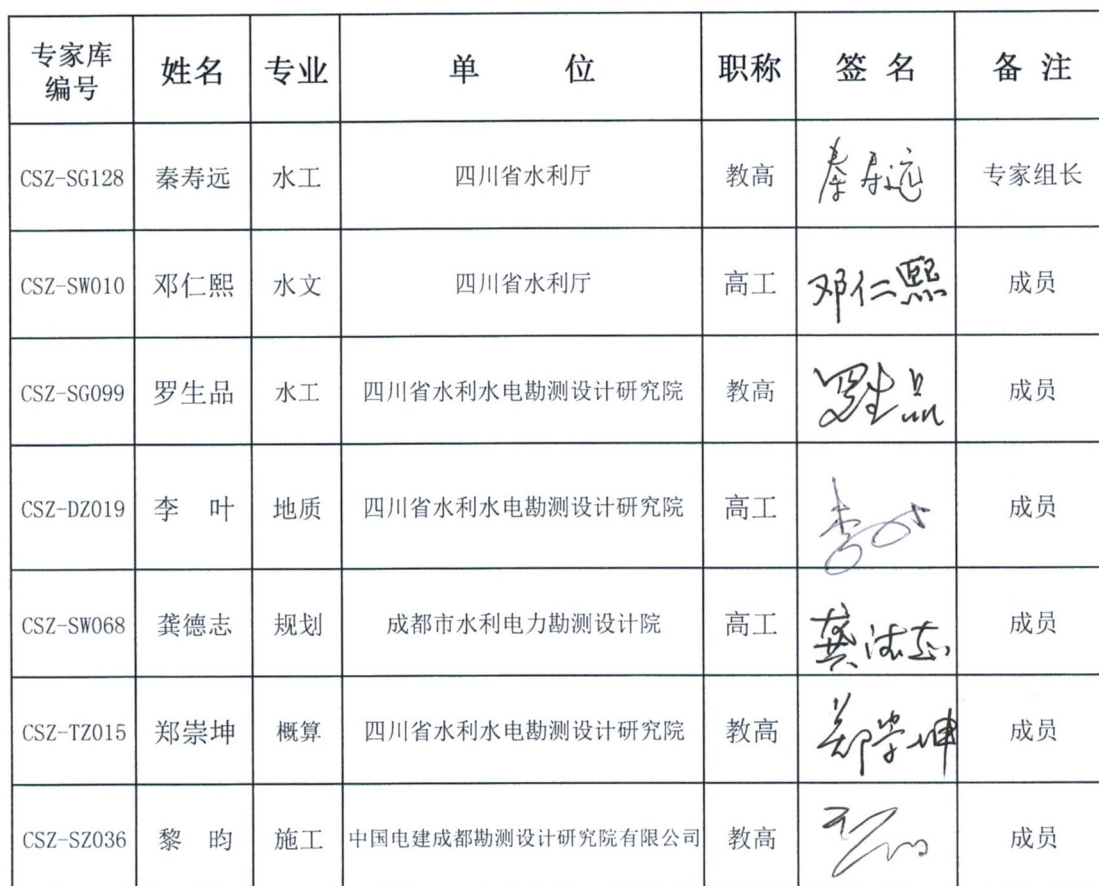 专家库
编号 姓名 专业 单 位 职称 签 名 备 注
CSZ-SG128 秦寿远 水工 四川省水利厅 教高 秦寿远 专家组长
CSZ-SW010 邓仁熙 水文 四川省水利厅 高工 邓仁熙 成员
CSZ-SG099 罗生品 水工 四川省水利水电勘测设计研究院 教高 罗生品 成员
CSZ-DZ019 李 叶 地质 四川省水利水电勘测设计研究院 高工 李叶 成员
CSZ-SW068 龚德志 规划 成都市水利电力勘测设计院 高工 龚德志 成员
CSZ-TZ015 郑崇坤 概算 四川省水利水电勘测设计研究院 教高 郑崇坤 成员
CSZ-SZ036 黎 昀 施工 中国电建成都勘测设计研究院有限公司 教高 成员